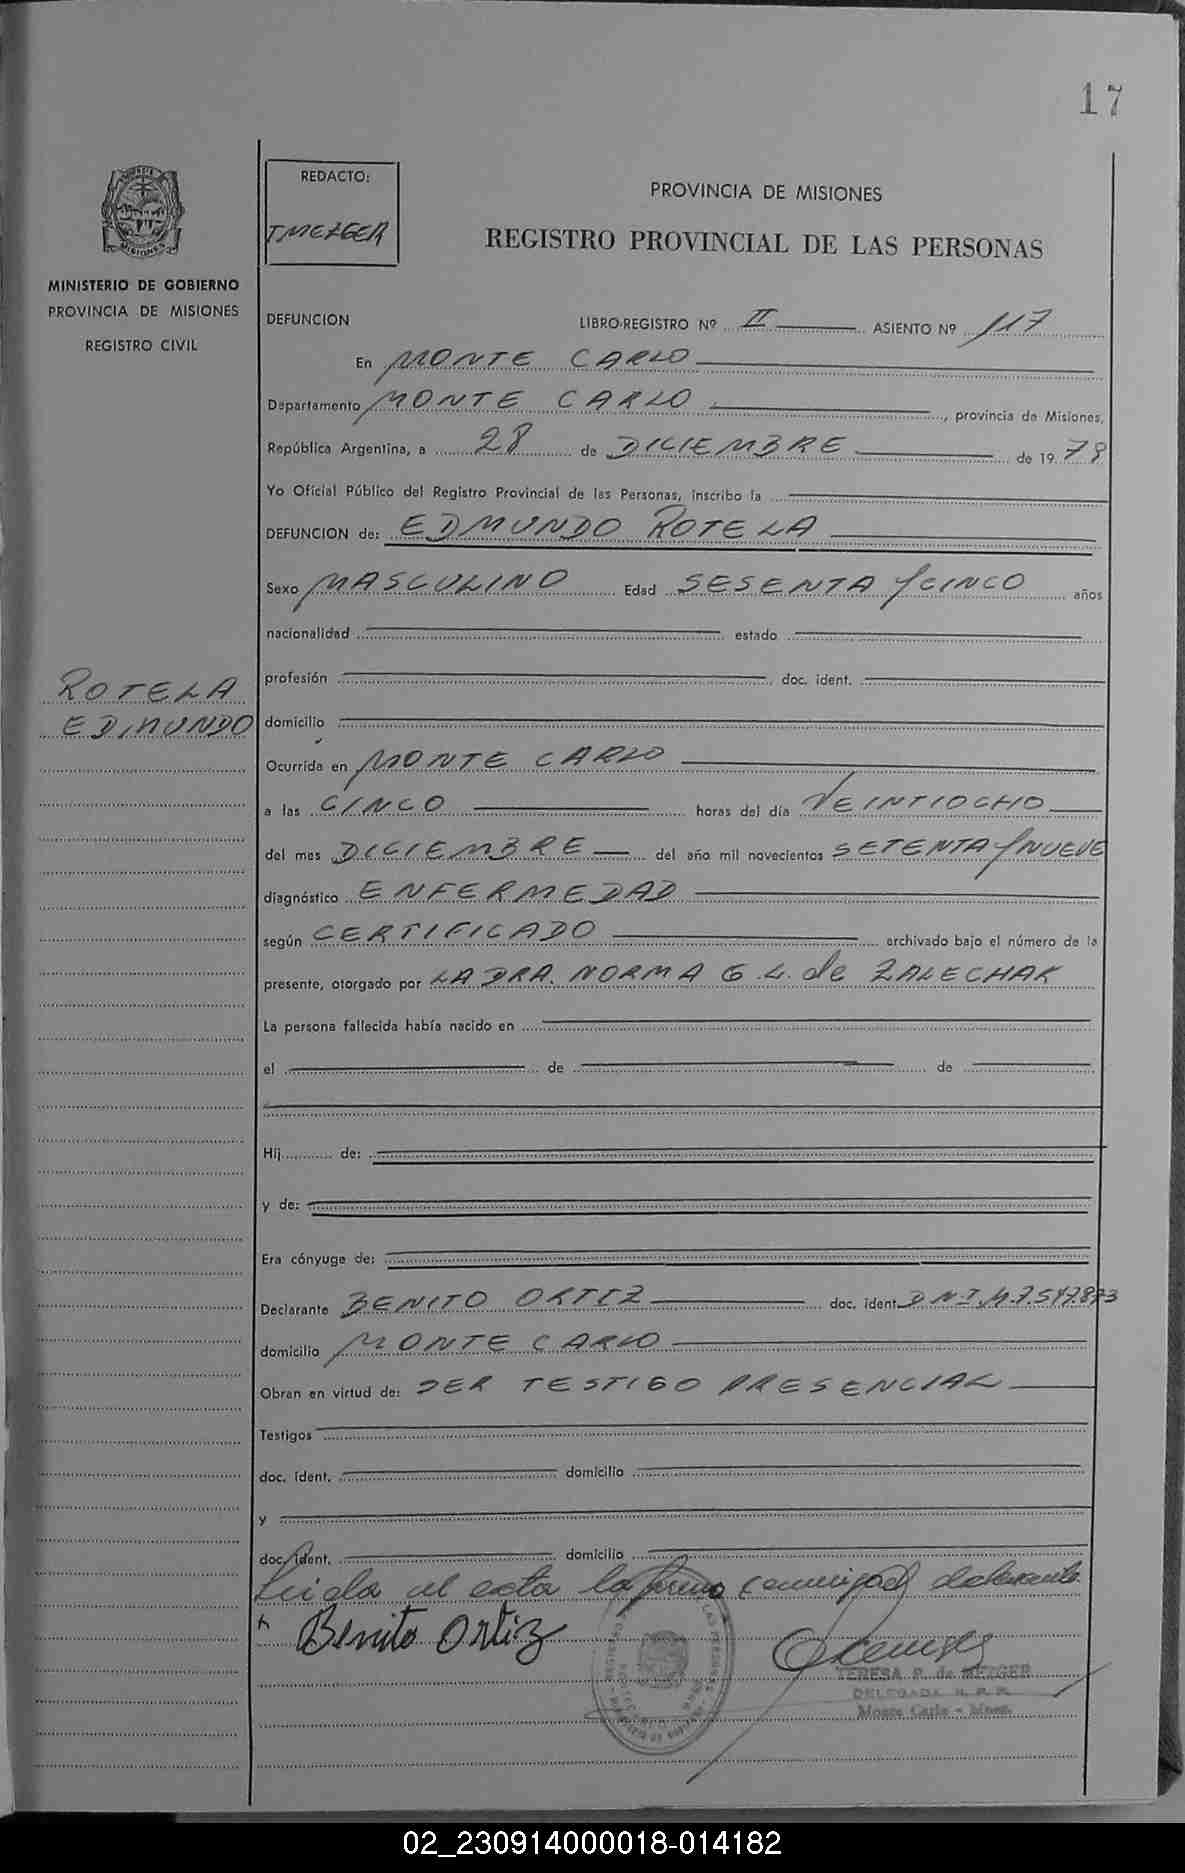 17
REDACTO:
TMEZGER
MINISTERIO DE GOBIERNO
PROVINCIA DE MISIONES
REGISTRO CIVIL
PROVINCIA DE MISIONES
REGISTRO PROVINCIAL DE LAS PERSONAS
DEFUNCION LIBRO-REGISTRO Nº II ASIENTO Nº 117
En MONTE CARLO
Departamento MONTE CARLO, provincia de Misiones,
República Argentina, a 28 de DICIEMBRE de 1979
Yo Oficial Público del Registro Provincial de las Personas, inscribo la
DEFUNCION de: EDMUNDO ROTELA
Sexo MASCULINO Edad SESENTA y CINCO años
nacionalidad estado
ROTELA
EDMUNDO
profesión doc. ident.
domicilio
Ocurrida en MONTE CARLO
a las CINCO horas del día VEINTIOCHO
del mes DICIEMBRE del año mil novecientos SETENTA y NUEVE
diagnóstico ENFERMEDAD
según CERTIFICADO archivado bajo el número de la
presente, otorgado por LA DRA. NORMA G. L. de ZALECHAK
La persona fallecida había nacido en
el de de
Hij de:
y de:
Era cónyuge de:
Declarante BENITO ORTIZ doc. ident. D.N.I.
domicilio MONTE CARLO
Obran en virtud de: SER TESTIGO PRESENCIAL
Testigos
doc. ident. domicilio
y
doc. ident. domicilio
Leida el acta la firma conmigo el declarante
Benito Ortiz
TERESA P. de MEZGER
DELEGADA R. P. P.
Monte Carlo - Mnes.
02_230914000018-014182